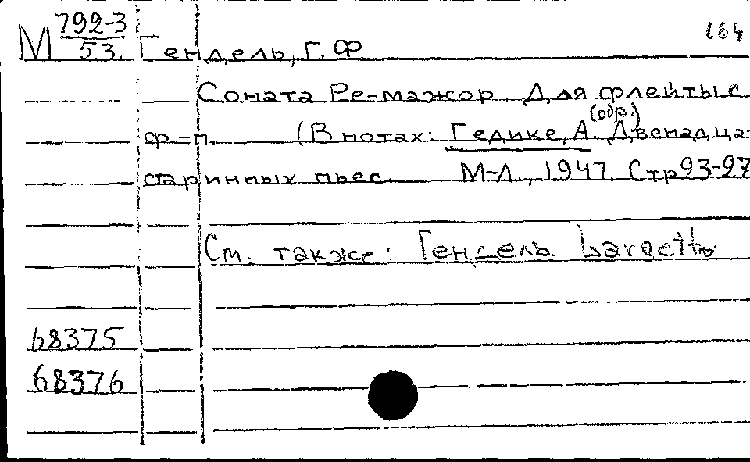 164
М 792-3
53. Гендель, Г. Ф
Соната Ре-мажор Для флейты с
(обр.)
ф-п. (В нотах: Гедике, А. Двенадца-
старинных пьес М-Л, 1947. Стр 93-97
См. также: Гендель Larghetto
68375
68376